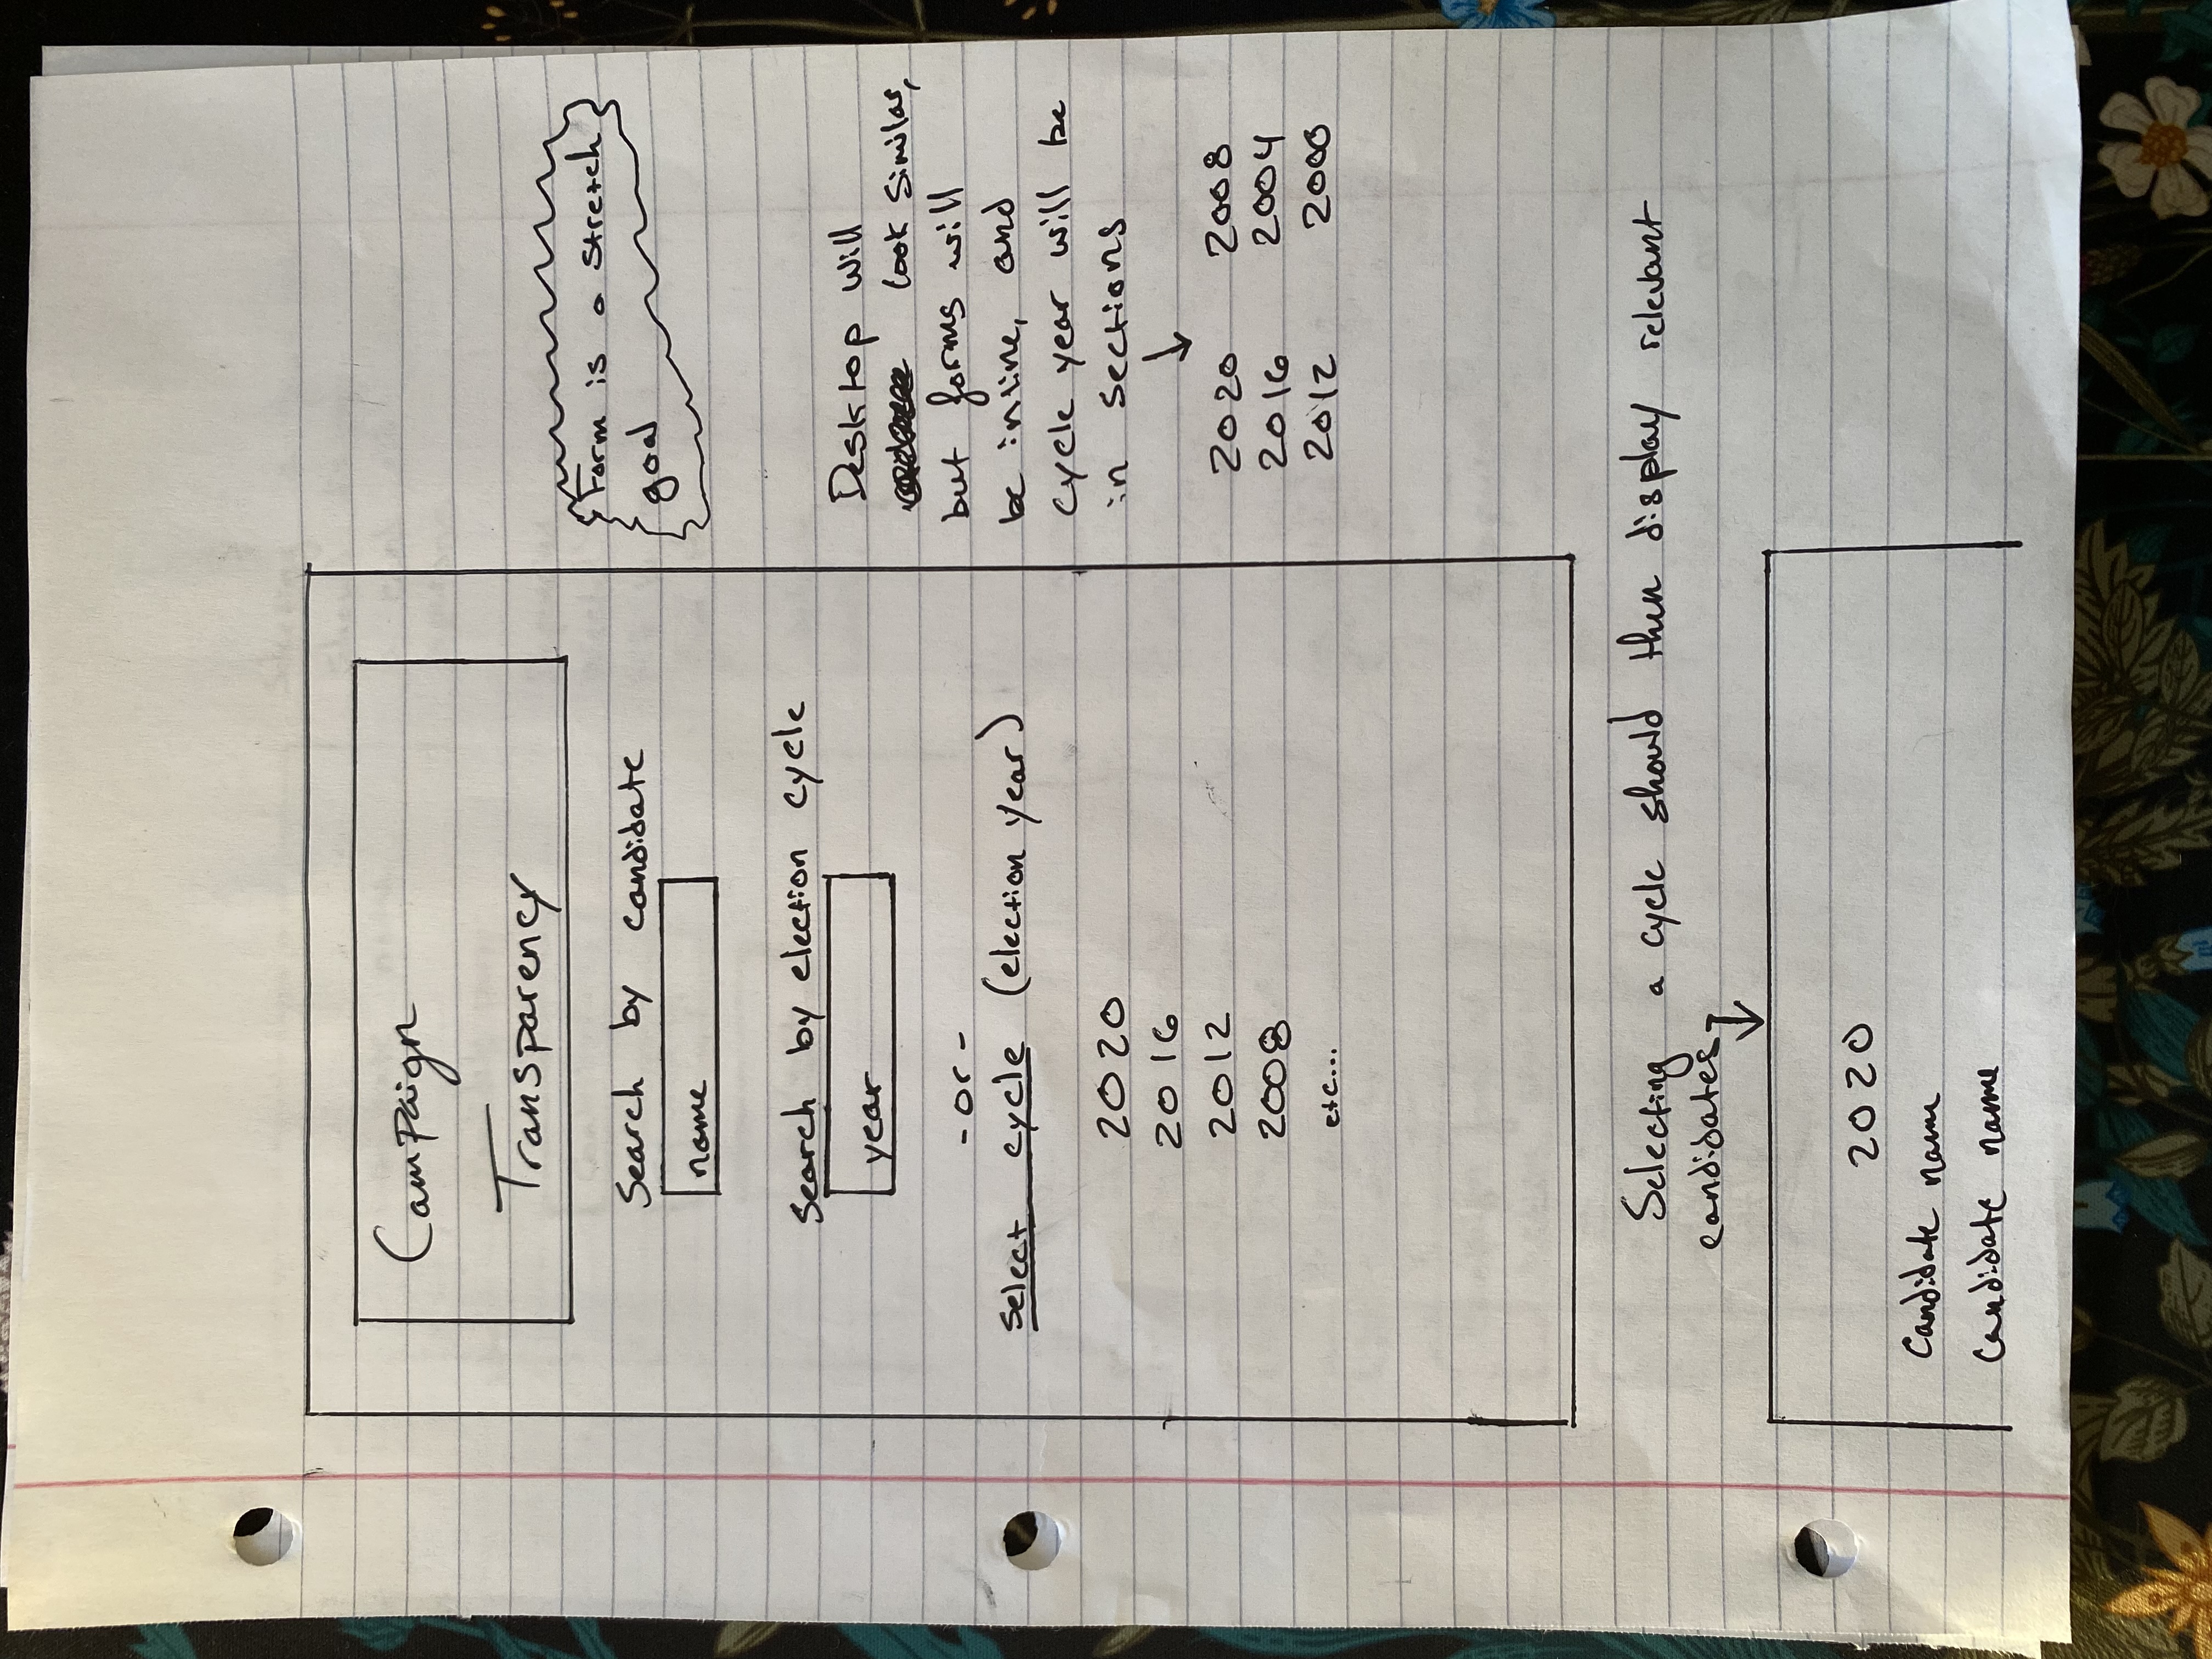 Campaign
Transparency
Search by candidate
name
Search by election cycle
year
-or-
Select cycle (election year)
2020
2016
2012
2008
etc...
{Form is a stretch}
{goal}
Desktop will
look similar,
but forms will
be inline, and
cycle year will be
in sections
↓
2020 2008
2016 2004
2012 2000
Selecting a cycle should then display relevant
candidates
↓
2020
Candidate name
Candidate name